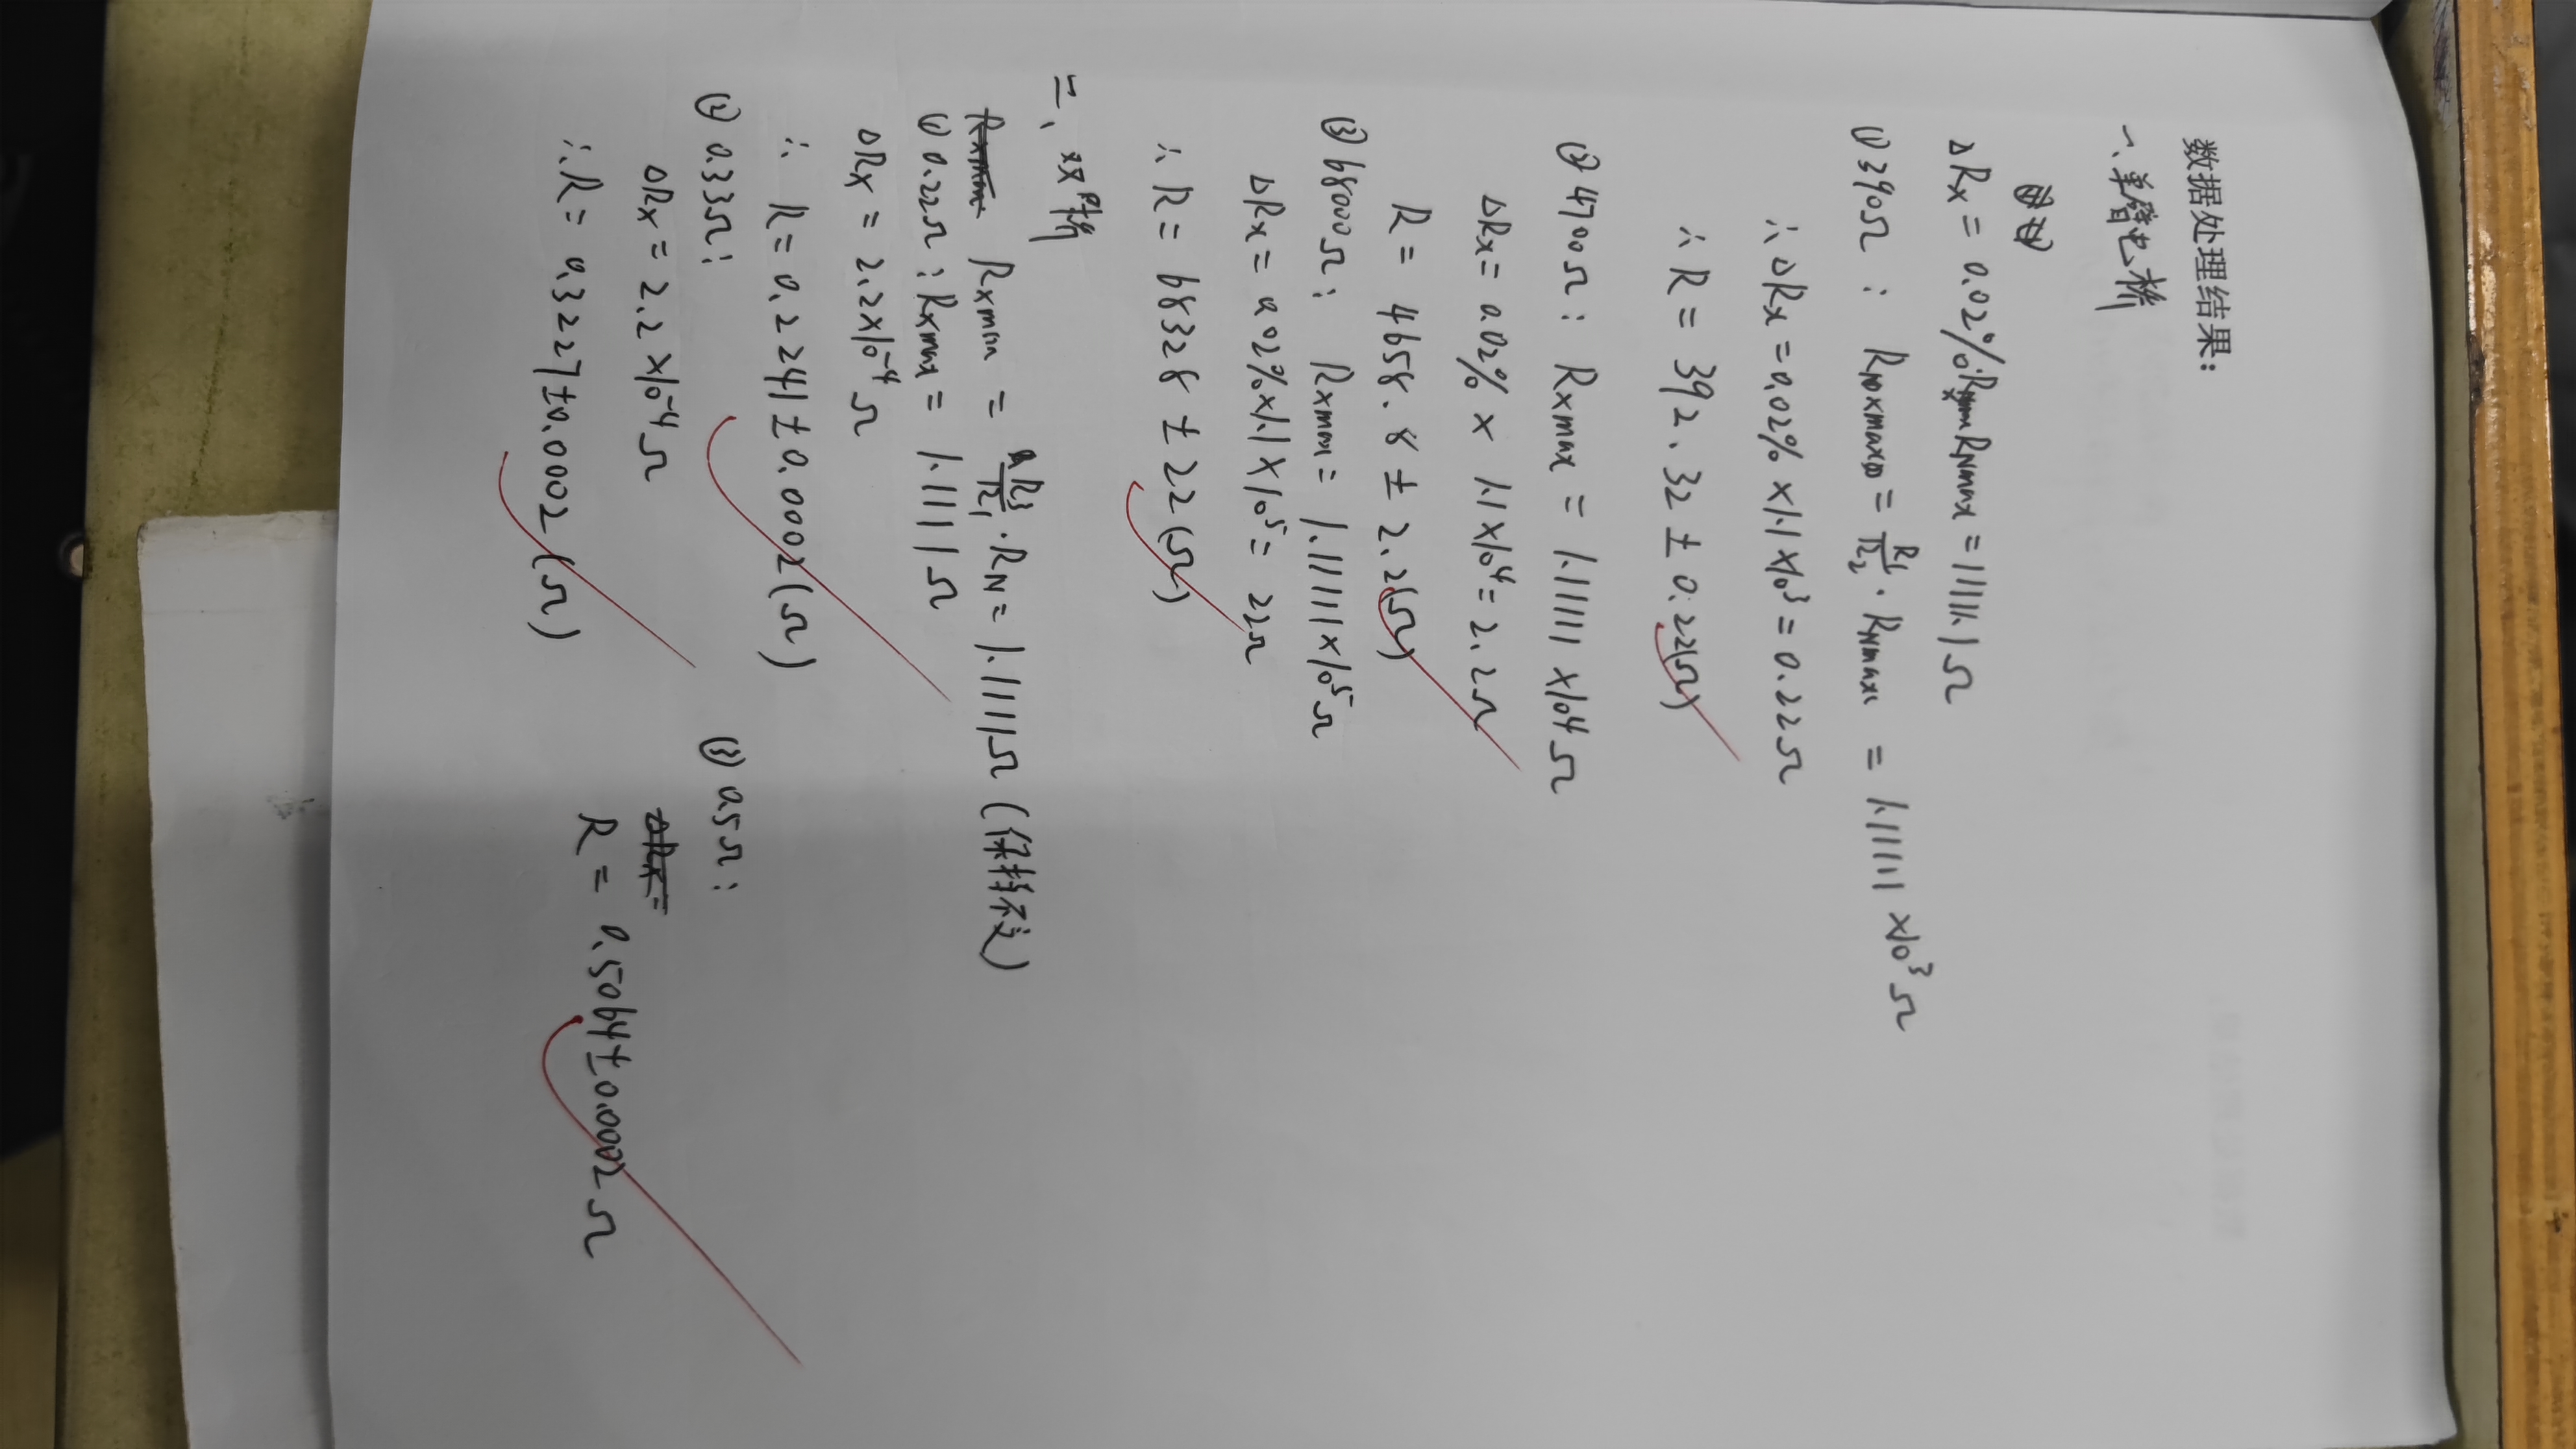 数据处理结果:
一、单臂电桥
ΔRx = 0.02% · RNmax = 11111.1Ω
① 390Ω: Rxmax = R1/R2 · RNmax = 1.11111 ×10³Ω
∴ ΔRx = 0.02% × 1.1 ×10³ = 0.22Ω
∴ R = 392.32 ± 0.22(Ω)
② 4700Ω: Rxmax = 1.11111 ×10⁴Ω
ΔRx = 0.02% × 1.1×10⁴ = 2.2Ω
R = 4658.8 ± 2.2(Ω)
③ 68000Ω: Rxmax = 1.11111×10⁵Ω
ΔRx = 0.02%×1.1×10⁵ = 22Ω
∴ R = 68328 ± 22(Ω)
二、双桥
Rxmax = R3/R1 · RN = 1.1111Ω (保持不变)
① 0.22Ω: Rxmax = 1.1111Ω
ΔRx = 2.2×10⁻⁴Ω
∴ R = 0.2241±0.0002(Ω)
② 0.33Ω:
ΔRx = 2.2×10⁻⁴Ω
∴ R = 0.3227±0.0002(Ω)
③ 0.5Ω:
R = 0.5064±0.0002Ω